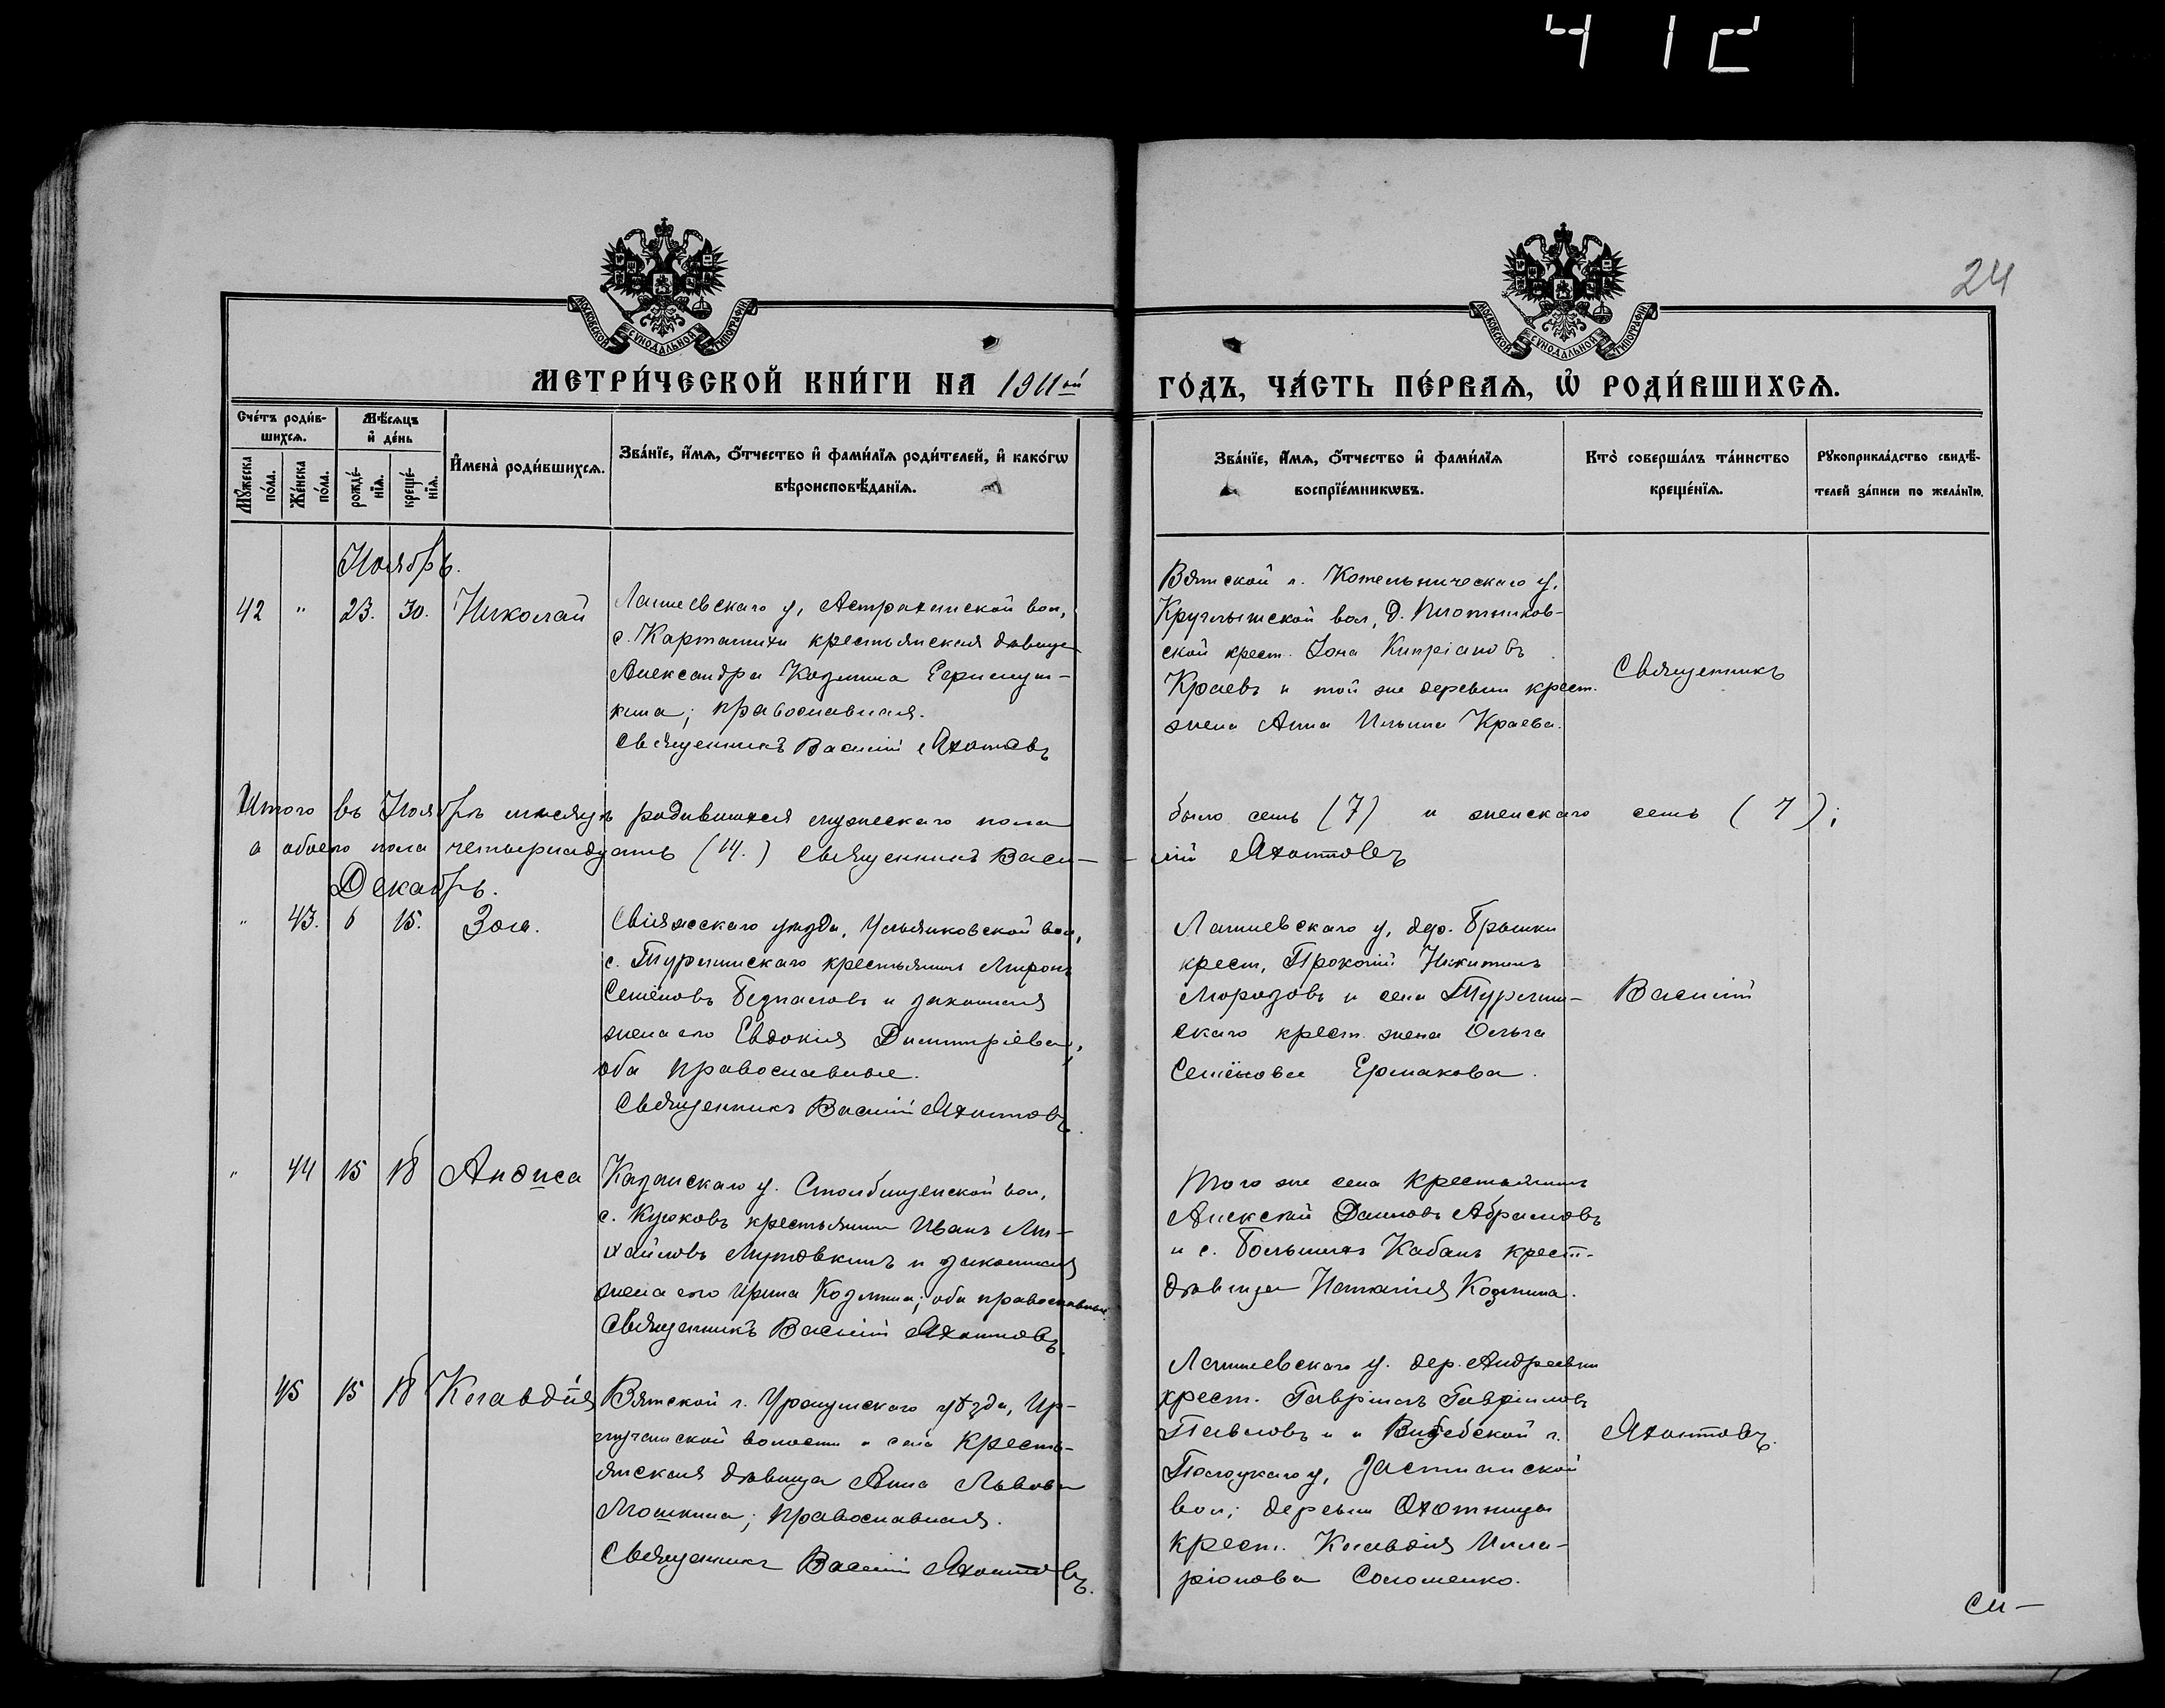 412
24
МОСКОВСКОЙ СУНОДАЛЬНОЙ ТИПОГРАФІИ
МОСКОВСКОЙ СУНОДАЛЬНОЙ ТИПОГРАФІИ
МЕТРИ́ЧЕСКОЙ КНИ́ГИ НА 1911ой ГО́ДЪ, ЧА́СТЬ ПЕ́РВАѦ, Ѡ҆ РОДИ́ВШИХСѦ.
Сче́тъ роди́в-
шихсѧ.
Мꙋ́жеска по́ла.
Же́нска по́ла.
Мѣ́сѧцъ
и҆ де́нь
рожде́-
нїѧ.
креще́-
нїѧ.
И҆мена̀ роди́вшихсѧ.
Зва́нїе, и҆́мѧ, ѻ҆́тчество и҆ фами́лїѧ роди́телей, и҆ како́гѡ
вѣроисповѣ́данїѧ.
Зва́нїе, и҆́мѧ, ѻ҆́тчество и҆ фами́лїѧ
воспрїе́мникѡвъ.
Кто̀ соверша́лъ та́инство
креще́нїѧ.
Рꙋкоприкла́дство свидѣ́-
телей за́писи по жела́нїю.
Ноябрь.
42 " 23. 30. Николай
Лаишевскаго у, Астраханской вол,
с. Карташихи крестьянская дѣвица
Александра Козмина
кина; православная.
Священникъ Василій Яхонтовъ
Вятской г. Котельническаго у,
Круглыжской вол, д. Плотников-
ской крест. Іона Кипріановъ
Краевъ и той же деревни крест.
жена Анна Ильина Краева.
Священникъ
Итого въ Ноябрѣ мѣсяцѣ родившихся мужескаго пола было семь (7) и женскаго семь (7);
а обоего пола четырнадцать (14.) Священникъ Васи- -лій Яхонтовъ
Декабрь.
" 43. 6 15. Зоя.
Свіяжскаго уѣзда, Ульянковской вол,
с. Туриминскаго крестьянинъ Миронъ
Семёновъ и законная
жена его Евдокия Димитріева,
оба православные.
Священникъ Василій Яхонтовъ.
Лаишевскаго у, дер. Брыжки
крест, Прокопій Никитинъ
Морозовъ и села Туримин-
скаго крест. жена Ольга
Семёнова Ермакова.
Василій
" 44 15 18 Анѳиса
Казанскаго у. Столбищенской вол,
с. Куюковъ крестьянинъ Иванъ Ми-
хайловъ и законная
жена его Ирина Козмина; оба православные
Священникъ Василій Яхонтовъ.
Того же села крестьянинъ
Алексѣй Даниловъ Абрамовъ
и с. Большихъ Кабанъ крест.
дѣвица Наталія Козмина.
45 15 18 Клавдія
Вятской г. Уржумскаго уѣзда,
волости и села кресть-
янская дѣвица Анна Львова
Мошкина; православная.
Священникъ Василій Яхонтовъ.
Лаишевскаго у. дер. Андреевки
крест. Гавріилъ Гавріиловъ
Павловъ и Витебской г.
Полоцкаго у,
вол; деревни Охотницы
крест. Клавдія Илла-
ріонова Соломенко.
Яхонтовъ.
си-